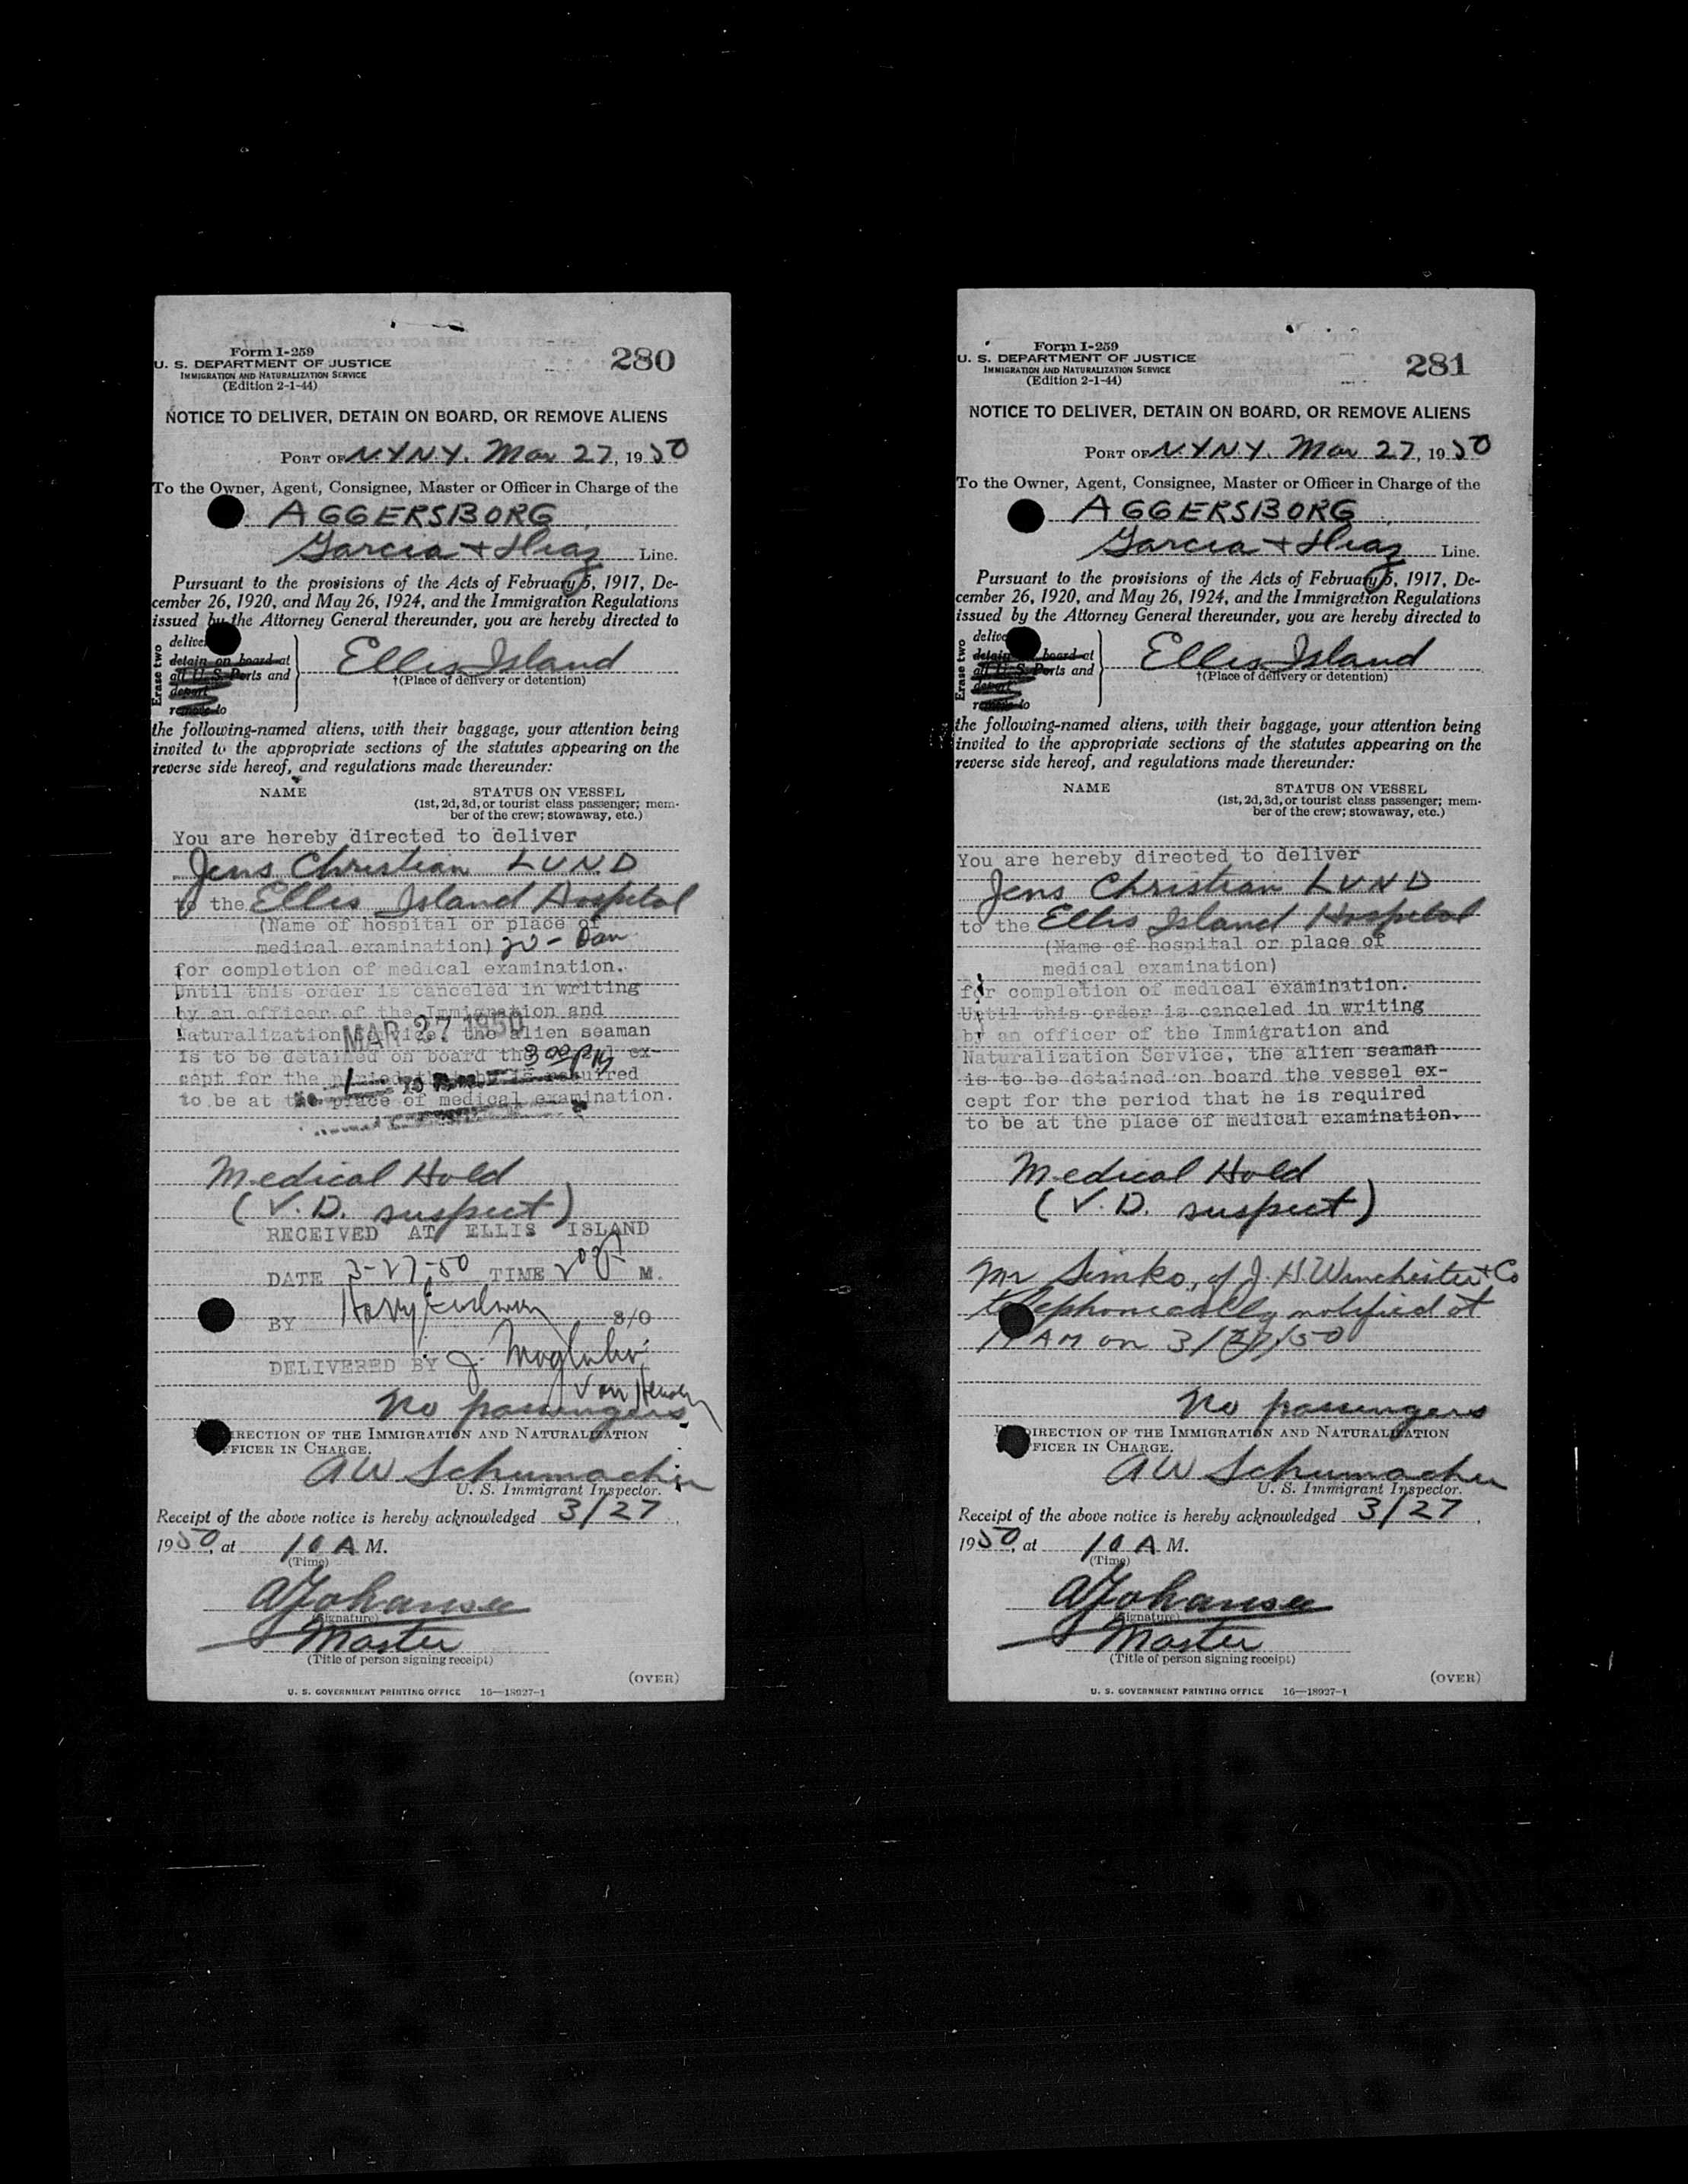 Form I-259
U. S. DEPARTMENT OF JUSTICE
IMMIGRATION AND NATURALIZATION SERVICE
(Edition 2-1-44)
280
NOTICE TO DELIVER, DETAIN ON BOARD, OR REMOVE ALIENS
PORT OF N.Y.N.Y. Mar 27, 1950
To the Owner, Agent, Consignee, Master or Officer in Charge of the
AGGERSBORG,
Garcia + Diaz Line.
Pursuant to the provisions of the Acts of February 5, 1917, De-
cember 26, 1920, and May 26, 1924, and the Immigration Regulations
issued by the Attorney General thereunder, you are hereby directed to
Erase two
deliver
detain on board at
all U. S. Ports and
deport
remove to
Ellis Island
†(Place of delivery or detention)
the following-named aliens, with their baggage, your attention being
invited to the appropriate sections of the statutes appearing on the
reverse side hereof, and regulations made thereunder:
NAME STATUS ON VESSEL
(1st, 2d, 3d, or tourist class passenger; mem-
ber of the crew; stowaway, etc.)
You are hereby directed to deliver
Jens Christian LUND
to the Ellis Island Hospital
(Name of hospital or place of
medical examination) - Dan
for completion of medical examination.
Until this order is canceled in writing
by an officer of the Immigration and
Naturalization Service, the alien seaman
MAR 27 1950
is to be detained on board the vessel ex-
300 PM
cept for the period that he is required
to be at the place of medical examination.
Medical Hold
(V.D. suspect)
RECEIVED AT ELLIS ISLAND
DATE 3-27-50 TIME M.
BY Harry S/O
DELIVERED BY J.
No passengers
DIRECTION OF THE IMMIGRATION AND NATURALIZATION
OFFICER IN CHARGE.
AW Schumacher
U. S. Immigrant Inspector.
Receipt of the above notice is hereby acknowledged 3/27,
1950, at 10 A M.
(Time)
A Johansen
(Signature)
Master
(Title of person signing receipt)
(OVER)
U. S. GOVERNMENT PRINTING OFFICE 16—18927-1
Form I-259
U. S. DEPARTMENT OF JUSTICE
IMMIGRATION AND NATURALIZATION SERVICE
(Edition 2-1-44)
281
NOTICE TO DELIVER, DETAIN ON BOARD, OR REMOVE ALIENS
PORT OF N.Y.N.Y. Mar 27, 1950
To the Owner, Agent, Consignee, Master or Officer in Charge of the
AGGERSBORG,
Garcia + Diaz Line.
Pursuant to the provisions of the Acts of February 5, 1917, De-
cember 26, 1920, and May 26, 1924, and the Immigration Regulations
issued by the Attorney General thereunder, you are hereby directed to
Erase two
deliver
detain on board at
all U. S. Ports and
deport
remove to
Ellis Island
†(Place of delivery or detention)
the following-named aliens, with their baggage, your attention being
invited to the appropriate sections of the statutes appearing on the
reverse side hereof, and regulations made thereunder:
NAME STATUS ON VESSEL
(1st, 2d, 3d, or tourist class passenger; mem-
ber of the crew; stowaway, etc.)
You are hereby directed to deliver
Jens Christian LUND
to the Ellis Island Hospital
(Name of hospital or place of
medical examination)
for completion of medical examination.
Until this order is canceled in writing
by an officer of the Immigration and
Naturalization Service, the alien seaman
is to be detained on board the vessel ex-
cept for the period that he is required
to be at the place of medical examination.
Medical Hold
(V.D. suspect)
Mr Simko, of J. H. Winchester + Co
telephonically notified at
11 AM on 3/27/50
No passengers
DIRECTION OF THE IMMIGRATION AND NATURALIZATION
OFFICER IN CHARGE.
AW Schumacher
U. S. Immigrant Inspector.
Receipt of the above notice is hereby acknowledged 3/27,
1950, at 10 A M.
(Time)
A Johansen
(Signature)
Master
(Title of person signing receipt)
(OVER)
U. S. GOVERNMENT PRINTING OFFICE 16—18927-1